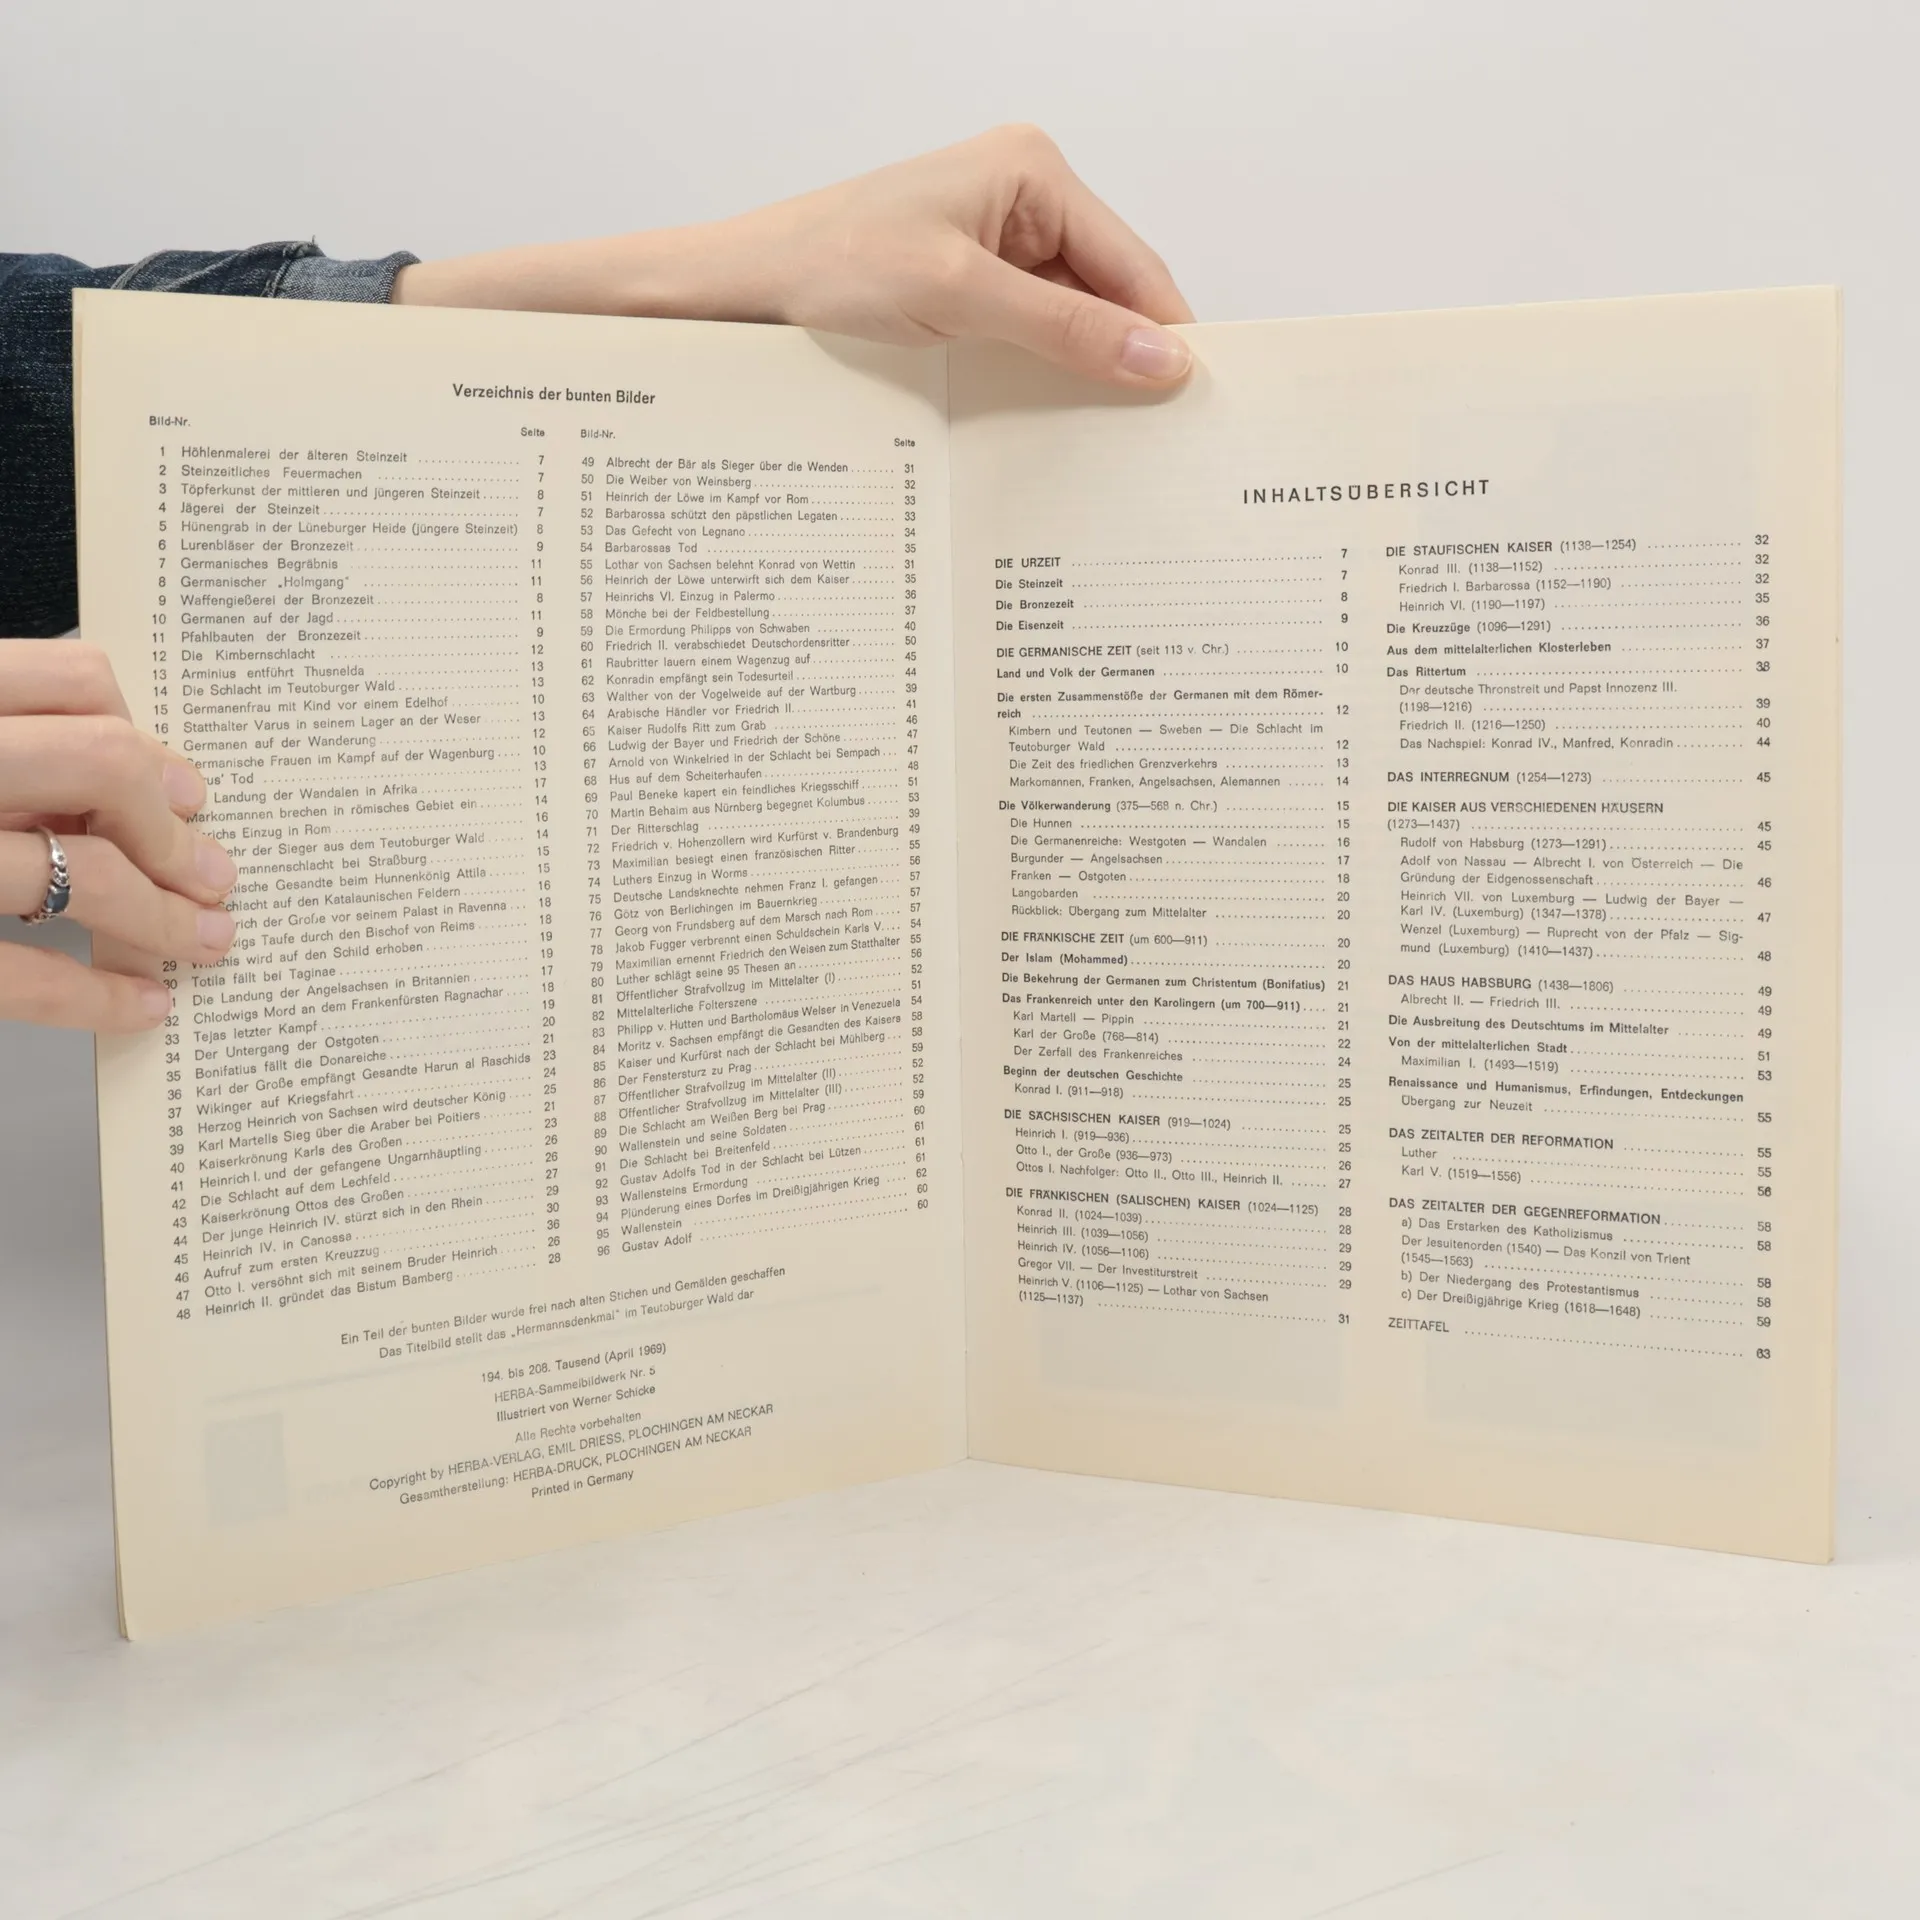 Verzeichnis der bunten Bilder
Bild-Nr. Seite
1 Höhlenmalerei der älteren Steinzeit 7
2 Steinzeitliches Feuermachen 7
3 Töpferkunst der mittleren und jüngeren Steinzeit 8
4 Jägerei der Steinzeit 7
5 Hünengrab in der Lüneburger Heide (jüngere Steinzeit) 8
6 Lurenbläser der Bronzezeit 9
7 Germanisches Begräbnis 11
8 Germanischer „Holmgang" 11
9 Waffengießerei der Bronzezeit 8
10 Germanen auf der Jagd 11
11 Pfahlbauten der Bronzezeit 9
12 Die Kimbernschlacht 12
13 Arminius entführt Thusnelda 13
14 Die Schlacht im Teutoburger Wald 13
15 Germanenfrau mit Kind vor einem Edelhof 10
16 Statthalter Varus in seinem Lager an der Weser 13
Germanen auf der Wanderung 12
Frauen im Kampf auf der Wagenburg 10
Tod 13
Landung der Wandalen in Afrika 17
Markomannen brechen in römisches Gebiet ein 14
Einzug in Rom 16
der Sieger aus dem Teutoburger Wald 14
bei Straßburg 15
Gesandte beim Hunnenkönig Attila 15
auf den Katalaunischen Feldern 16
der Große vor seinem Palast in Ravenna 18
Taufe durch den Bischof von Reims 18
29 wird auf den Schild erhoben 19
30 Totila fällt bei Taginae 19
Die Landung der Angelsachsen in Britannien 17
32 Chlodwigs Mord an dem Frankenfürsten Ragnachar 18
33 Tejas letzter Kampf 19
34 Der Untergang der Ostgoten 20
35 Bonifatius fällt die Donareiche 21
36 Karl der Große empfängt Gesandte Harun al Raschids 23
37 Wikinger auf Kriegsfahrt 24
38 Herzog Heinrich von Sachsen wird deutscher König 25
39 Karl Martells Sieg über die Araber bei Poitiers 21
40 Kaiserkrönung Karls des Großen 23
41 Heinrich I. und der gefangene Ungarnhäuptling 26
42 Die Schlacht auf dem Lechfeld 26
43 Kaiserkrönung Ottos des Großen 27
44 Der junge Heinrich IV. stürzt sich in den Rhein 29
45 Heinrich IV. in Canossa 30
46 Aufruf zum ersten Kreuzzug 36
47 Otto I. versöhnt sich mit seinem Bruder Heinrich 26
48 Heinrich II. gründet das Bistum Bamberg 28
Bild-Nr. Seite
49 Albrecht der Bär als Sieger über die Wenden 31
50 Die Weiber von Weinsberg 32
51 Heinrich der Löwe im Kampf vor Rom 33
52 Barbarossa schützt den päpstlichen Legaten 33
53 Das Gefecht von Legnano 34
54 Barbarossas Tod 35
55 Lothar von Sachsen belehnt Konrad von Wettin 31
56 Heinrich der Löwe unterwirft sich dem Kaiser 35
57 Heinrichs VI. Einzug in Palermo 36
58 Mönche bei der Feldbestellung 37
59 Die Ermordung Philipps von Schwaben 40
60 Friedrich II. verabschiedet Deutschordensritter 50
61 Raubritter lauern einem Wagenzug auf 45
62 Konradin empfängt sein Todesurteil 44
63 Walther von der Vogelweide auf der Wartburg 39
64 Arabische Händler vor Friedrich II. 41
65 Kaiser Rudolfs Ritt zum Grab 46
66 Ludwig der Bayer und Friedrich der Schöne 47
67 Arnold von Winkelried in der Schlacht bei Sempach 47
68 Hus auf dem Scheiterhaufen 48
69 Paul Beneke kapert ein feindliches Kriegsschiff 51
70 Martin Behaim aus Nürnberg begegnet Kolumbus 53
71 Der Ritterschlag 39
72 Friedrich v. Hohenzollern wird Kurfürst v. Brandenburg 49
73 Maximilian besiegt einen französischen Ritter 55
74 Luthers Einzug in Worms 56
75 Deutsche Landsknechte nehmen Franz I. gefangen 57
76 Götz von Berlichingen im Bauernkrieg 57
77 Georg von Frundsberg auf dem Marsch nach Rom 57
78 Jakob Fugger verbrennt einen Schuldschein Karls V. 54
79 Maximilian ernennt Friedrich den Weisen zum Statthalter 55
80 Luther schlägt seine 95 Thesen an 56
81 Öffentlicher Strafvollzug im Mittelalter (I) 52
82 Mittelalterliche Folterszene 51
83 Philipp v. Hutten und Bartholomäus Welser in Venezuela 54
84 Moritz v. Sachsen empfängt die Gesandten des Kaisers 58
85 Kaiser und Kurfürst nach der Schlacht bei Mühlberg 58
86 Der Fenstersturz zu Prag 59
87 Öffentlicher Strafvollzug im Mittelalter (II) 52
88 Öffentlicher Strafvollzug im Mittelalter (III) 52
89 Die Schlacht am Weißen Berg bei Prag 59
90 Wallenstein und seine Soldaten 60
91 Die Schlacht bei Breitenfeld 61
92 Gustav Adolfs Tod in der Schlacht bei Lützen 61
93 Wallensteins Ermordung 61
94 Plünderung eines Dorfes im Dreißigjährigen Krieg 62
95 Wallenstein 60
96 Gustav Adolf 60
Ein Teil der bunten Bilder wurde frei nach alten Stichen und Gemälden geschaffen
Das Titelbild stellt das „Hermannsdenkmal" im Teutoburger Wald dar
194. bis 208. Tausend (April 1969)
HERBA-Sammelbildwerk Nr. 5
Illustriert von Werner Schicke
Alle Rechte vorbehalten
Copyright by HERBA-VERLAG, EMIL DRIESS, PLOCHINGEN AM NECKAR
Gesamtherstellung: HERBA-DRUCK, PLOCHINGEN AM NECKAR
Printed in Germany
INHALTSÜBERSICHT
DIE URZEIT 7
Die Steinzeit 7
Die Bronzezeit 8
Die Eisenzeit 9
DIE GERMANISCHE ZEIT (seit 113 v. Chr.) 10
Land und Volk der Germanen 10
Die ersten Zusammenstöße der Germanen mit dem Römer-
reich 12
Kimbern und Teutonen — Sweben — Die Schlacht im
Teutoburger Wald 12
Die Zeit des friedlichen Grenzverkehrs 13
Markomannen, Franken, Angelsachsen, Alemannen 14
Die Völkerwanderung (375—568 n. Chr.) 15
Die Hunnen 15
Die Germanenreiche: Westgoten — Wandalen 16
Burgunder — Angelsachsen 17
Franken — Ostgoten 18
Langobarden 20
Rückblick: Übergang zum Mittelalter 20
DIE FRÄNKISCHE ZEIT (um 600—911) 20
Der Islam (Mohammed) 20
Die Bekehrung der Germanen zum Christentum (Bonifatius) 21
Das Frankenreich unter den Karolingern (um 700—911) 21
Karl Martell — Pippin 21
Karl der Große (768—814) 22
Der Zerfall des Frankenreiches 24
Beginn der deutschen Geschichte 25
Konrad I. (911—918) 25
DIE SÄCHSISCHEN KAISER (919—1024) 25
Heinrich I. (919—936) 25
Otto I., der Große (936—973) 26
Ottos I. Nachfolger: Otto II., Otto III., Heinrich II. 27
DIE FRÄNKISCHEN (SALISCHEN) KAISER (1024—1125) 28
Konrad II. (1024—1039) 28
Heinrich III. (1039—1056) 29
Heinrich IV. (1056—1106) 29
Gregor VII. — Der Investiturstreit 29
Heinrich V. (1106—1125) — Lothar von Sachsen
(1125—1137) 31
DIE STAUFISCHEN KAISER (1138—1254) 32
Konrad III. (1138—1152) 32
Friedrich I. Barbarossa (1152—1190) 32
Heinrich VI. (1190—1197) 35
Die Kreuzzüge (1096—1291) 36
Aus dem mittelalterlichen Klosterleben 37
Das Rittertum 38
Der deutsche Thronstreit und Papst Innozenz III.
(1198—1216) 39
Friedrich II. (1216—1250) 40
Das Nachspiel: Konrad IV., Manfred, Konradin 44
DAS INTERREGNUM (1254—1273) 45
DIE KAISER AUS VERSCHIEDENEN HÄUSERN
(1273—1437) 45
Rudolf von Habsburg (1273—1291) 45
Adolf von Nassau — Albrecht I. von Österreich — Die
Gründung der Eidgenossenschaft 46
Heinrich VII. von Luxemburg — Ludwig der Bayer —
Karl IV. (Luxemburg) (1347—1378) 47
Wenzel (Luxemburg) — Ruprecht von der Pfalz — Sig-
mund (Luxemburg) (1410—1437) 48
DAS HAUS HABSBURG (1438—1806) 49
Albrecht II. — Friedrich III. 49
Die Ausbreitung des Deutschtums im Mittelalter 49
Von der mittelalterlichen Stadt 51
Maximilian I. (1493—1519) 53
Renaissance und Humanismus, Erfindungen, Entdeckungen
Übergang zur Neuzeit 55
DAS ZEITALTER DER REFORMATION 55
Luther 55
Karl V. (1519—1556) 56
DAS ZEITALTER DER GEGENREFORMATION 58
a) Das Erstarken des Katholizismus 58
Der Jesuitenorden (1540) — Das Konzil von Trient
(1545—1563) 58
b) Der Niedergang des Protestantismus 58
c) Der Dreißigjährige Krieg (1618—1648) 59
ZEITTAFEL 63